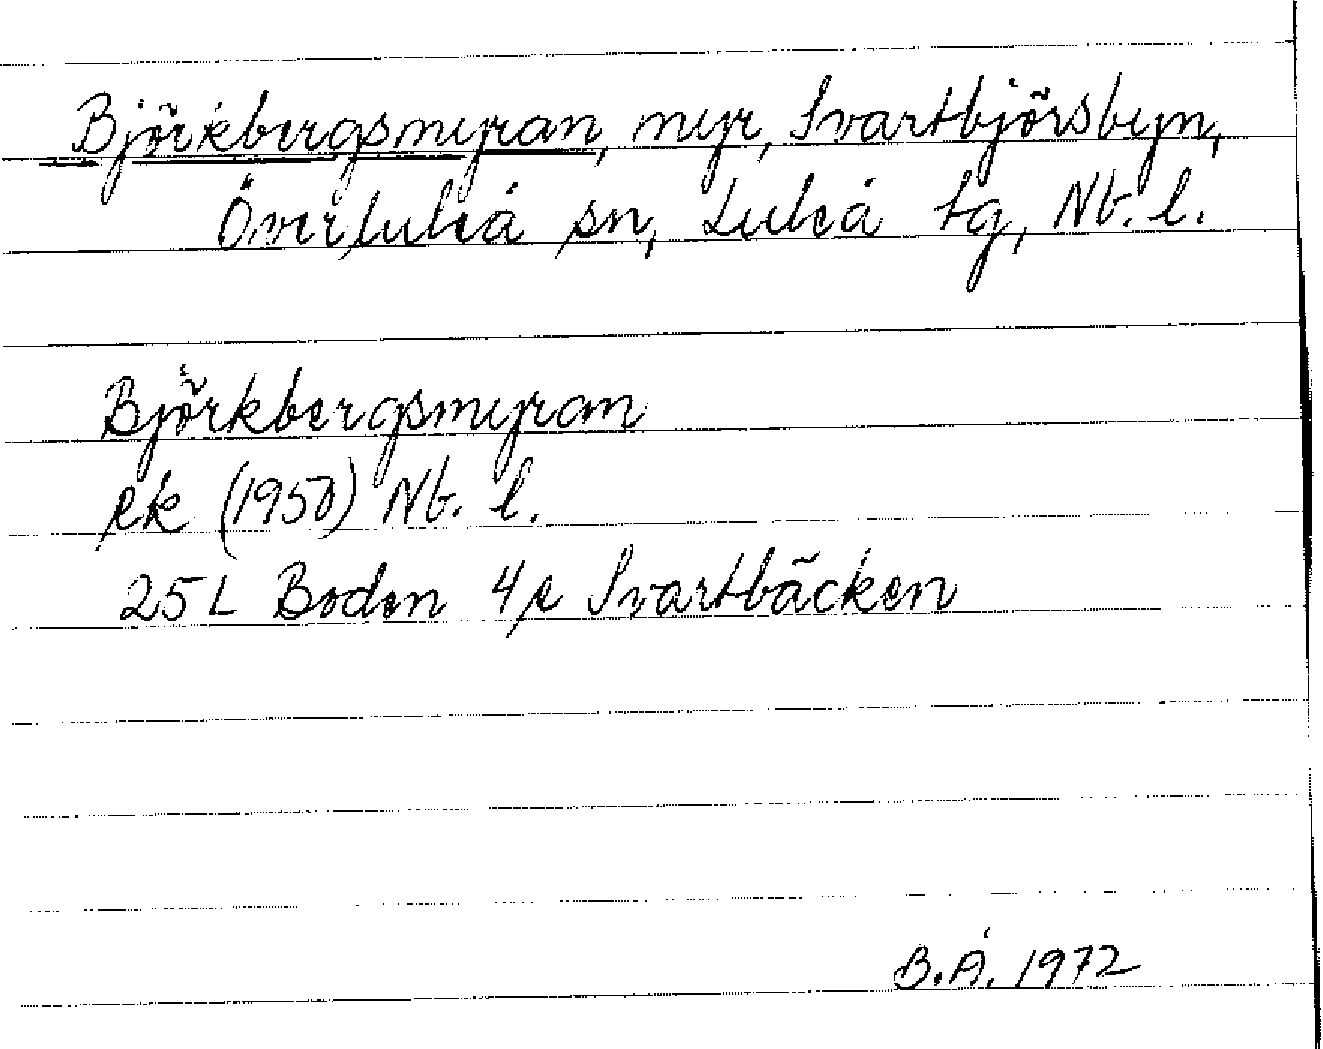 Björkbergsmyran, myr, Svartbjörsbyn,
Överluleå sn, Luleå tg, Nb. l.
Björkbergsmyran
ek (1950) Nb. l.
25 L Boden 4 e Svartbäcken
B.Å. 1972